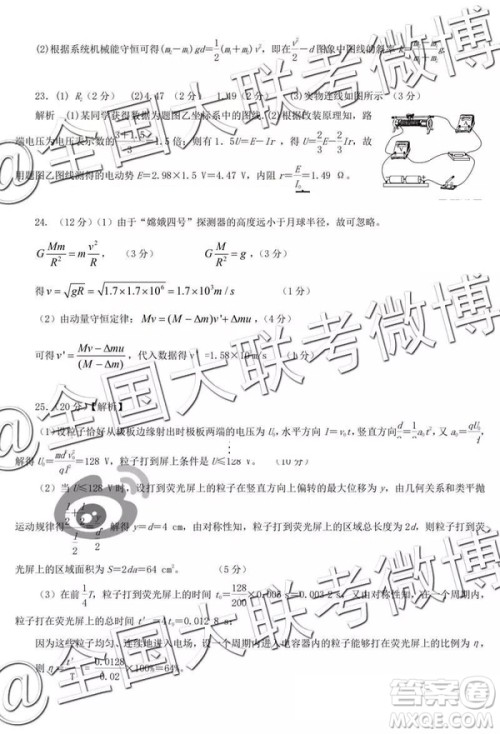 (2)根据系统机械能守恒可得(m₁-m₂)gd=1/2(m₁+m₂)v²，即在v²-d图象中图线的斜率
23. (1) R₂(2分) (2)4.47 (2分) 1.49(2分) (3)实物连线如图所示 (3分)
解析 (1)某同学获得数据为题图乙坐标系中的图线；(2)根据改装原理知，路
端电压为电压表示数的(3+1.5)/3=1.5倍；则有1.5U=E-Ir，即U=2/3E-2/3Ir
用题图乙图线测得的电动势E=2.98×1.5 V=4.47 V，内阻r=E/I₀=1.49 Ω.
24. (12分)(1)由于“嫦娥四号”探测器的高度远小于月球半径，故可忽略。
G Mm/R²=m v²/R，(3分) G M/R²=g，(3分)
得v=√gR=√1.7×1.7×10⁶=1.7×10³m/s (1分)
(2)由动量守恒定律：Mv=(M-Δm)v'+Δmu，(4分)
可得v'=(Mv-Δmu)/(M-Δm)，代入数据得v'=1.58×10³m/s (1分)
25. (20分)【解析】
(1)设粒子恰好从极板边缘射出时极板两端的电压为U₀，水平方向l=v₀t，竖直方向d/2=1/2at²，又a=qU₀/md
解得U₀=md²v₀²/ql²=128 V，粒子打到屏上条件是U≤128 V。 (10分)
(2)当U≤128 V时，设打到荧光屏上的粒子在竖直方向上偏转的最大位移为y，由几何关系和类平抛
运动规律得 解得y=d=4 cm，由对称性知，粒子打到荧光屏上的区域总长度为2d，则打到荧
光屏上的区域面积为S=2da=64 cm² (5分)
(3)在前1/4T，粒子打到荧光屏上的总时间t₀=128/200×0.005 s=0.0032 s，由对称性知，在一个周期内，
打到荧光屏上的总时间t'=4t₀=0.0128 s
因为这些粒子均匀、连续地进入电场，设一个周期内进入电容器内的粒子打在荧光屏上的比例为η，
则η=t'/T=0.0128/0.02×100%=64%。
@全国大联考微博
@全国大联考微博
@全国大联考微博
答案圈
MXQE.COM